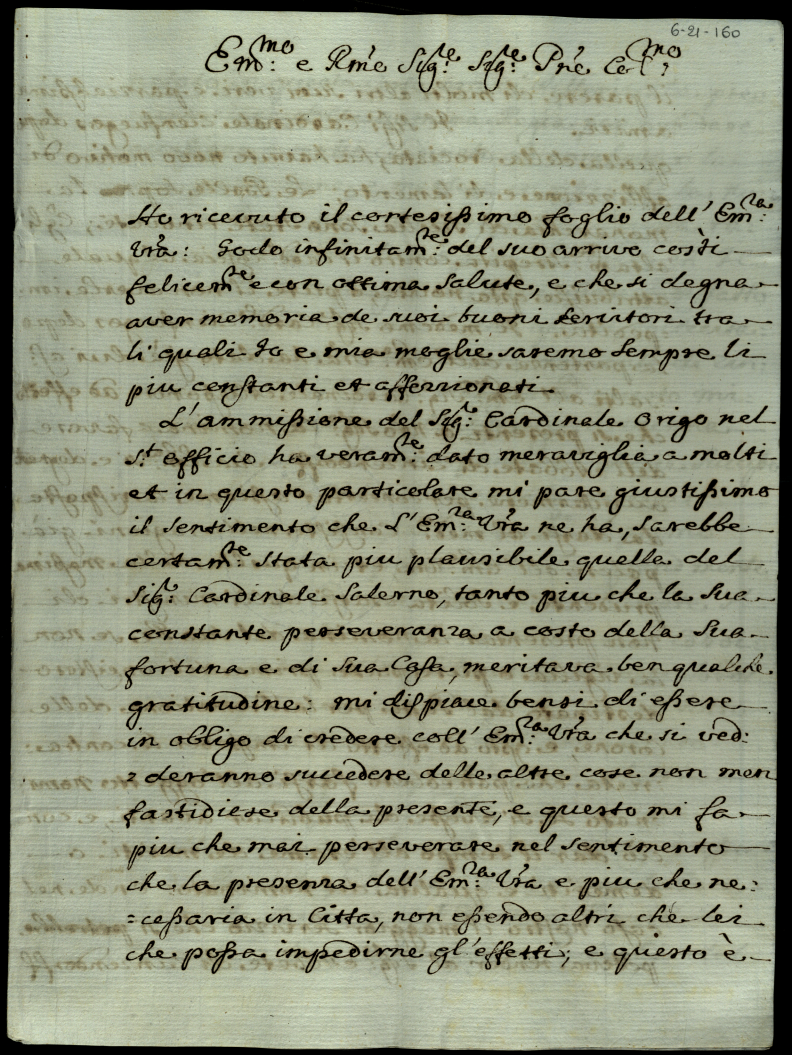 6-21-160
Em:mo e Rm̃e Sigr:e Sigr:e Prẽ Col:mo
Ho ricevuto il cortesißimo foglio dell' Em:za
Vr̃a: Godo infinitam:te del suo arrivo costì
felicem:te e con ottima salute, e che si degna
aver memoria de suoi buoni servitori tra
li quali Io e mia moglie saremo sempre li
piu constanti et affezzionati.
L'ammißione del Sig:r Cardinale Origo nel
S.t Officio ha veram:te dato meraviglia a molti
et in questo particolare mi pare giustißimo
il sentimento che L'Em:za Vr̃a ne ha, sarebbe
certam:te stata piu plausibile quella del
Sig:r Cardinale Salerno, tanto piu che la sua
constante perseveranza a costo della sua
fortuna e di sua Casa, meritava ben qualche
gratitudine: mi dispiace bensi di eßere
in obligo di credere coll' Em:za Vr̃a che si ved:
=deranno succedere delle altre cose non men
fastidiose della presente, e questo mi fa
piu che mai perseverare nel sentimento
che la presenza dell' Em:za Vr̃a e piu che ne:
=ceßaria in Citta, non eßendo altri che lei
che poßa impedirne gl'effetti; e questo è